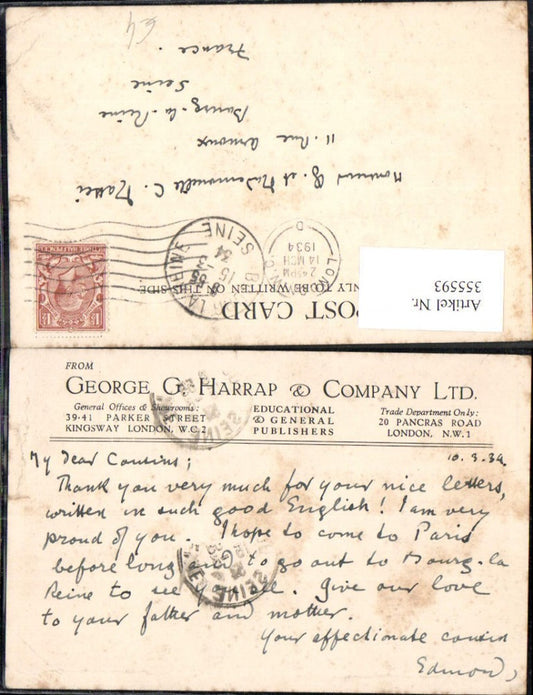 POST CARD
ONLY TO BE WRITTEN ON THIS SIDE
LONDON
2:45 PM
14 MCH
1934
D
LA REINE
15 3
34
SEINE
Artikel Nr.
355593
Monsieur G. et Mademoiselle C.
11. Rue
Bourg-la-Reine
Seine
France.
FROM
GEORGE G. HARRAP & COMPANY LTD.
General Offices & Showrooms:
39-41 PARKER STREET
KINGSWAY LONDON, W.C.2
EDUCATIONAL
& GENERAL
PUBLISHERS
Trade Department Only:
20 PANCRAS ROAD
LONDON, N.W.1
10.3.34
My Dear Cousins;
Thank you very much for your nice letters,
written in such good English! I am very
proud of you. I hope to come to Paris
before long and to go out to Bourg-la
Reine to see you all. Give our love
to your father and mother.
Your affectionate cousin
Edmond,
SEINE